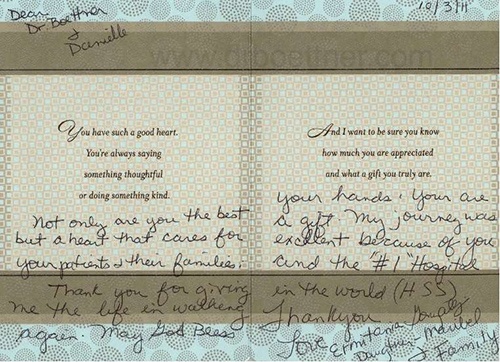 Dear
Dr. Boettner
&
Danielle
10/3/11
www.drboettner.com
You have such a good heart.
You're always saying
something thoughtful
or doing something kind.
Not only are you the best
but a heart that cares for
your patients & their families.
Thank you for giving
me the life in walking
again. May God Bless
And I want to be sure you know
how much you are appreciated
and what a gift you truly are.
your hands. Your are
a gift. My journey was
excellent because of you
and the "#1" Hospital
in the world (HSS)
Thankyou
Love Ermitania
Daughter Maribel
& Family